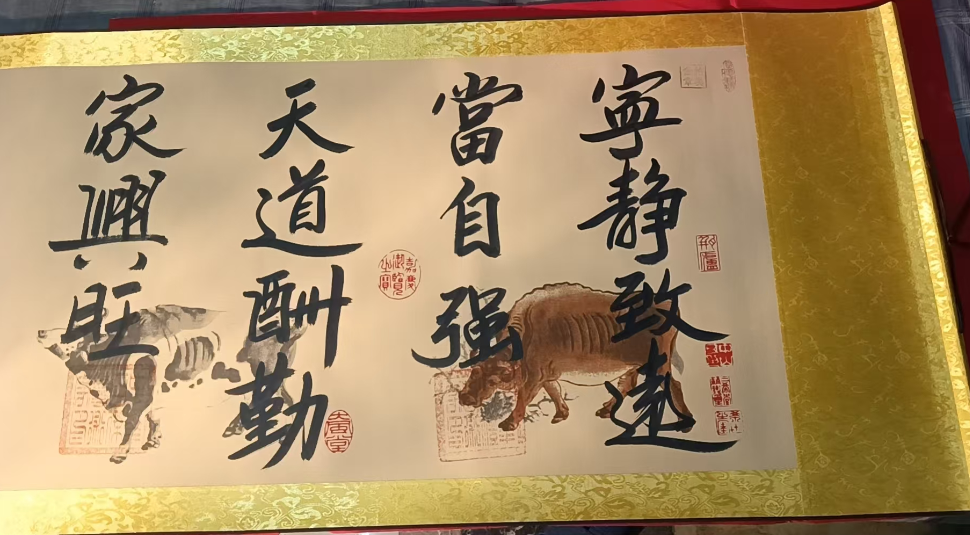 寧静致遠
當自强
天道酬勤
家興旺